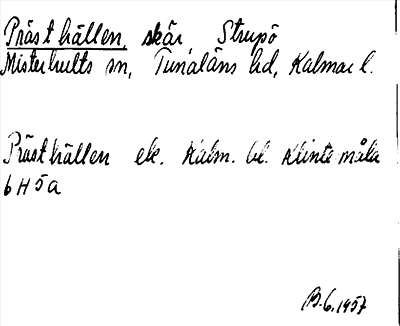 Prästhällen, skär, Strupö
Misterhults sn, Tunaläns hd, Kalmar l.
Prästhällen ek. Kalm. bl. Klintemåla
6 H 5 a
B. 6. 1957